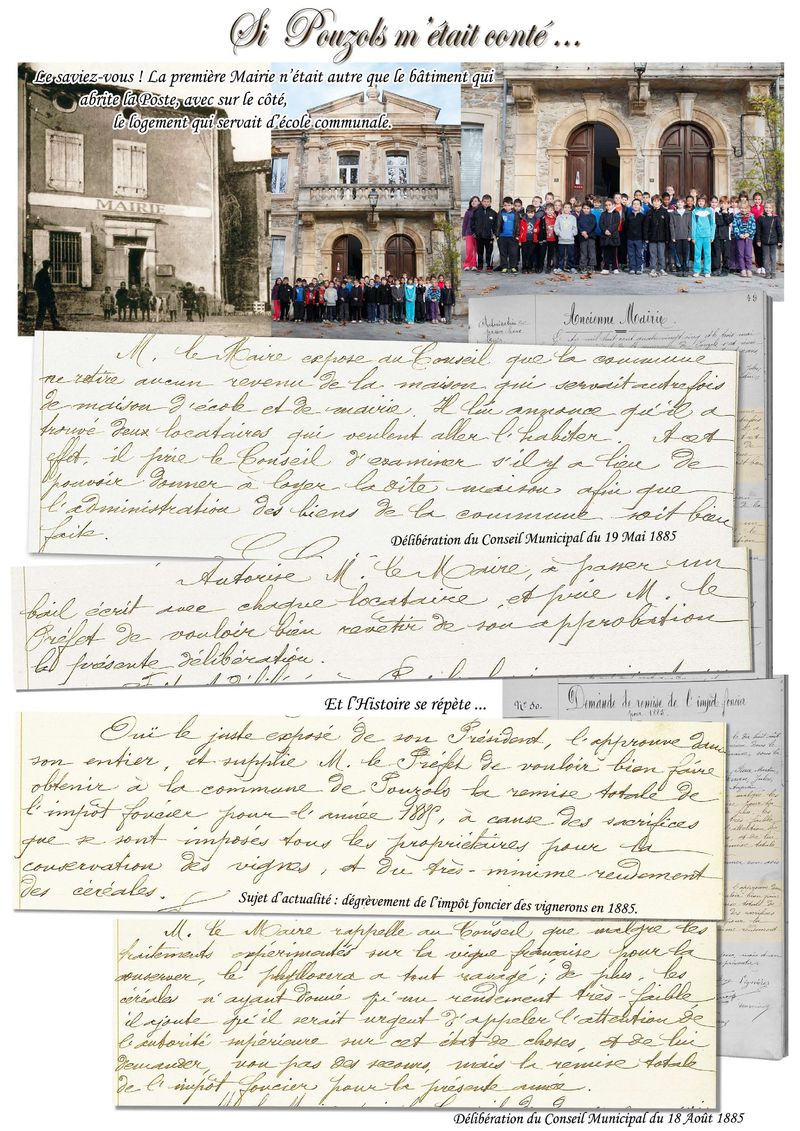 Si Pouzols m'était conté ...
Le saviez-vous ! La première Mairie n'était autre que le bâtiment qui
abrite la Poste, avec sur le côté,
le logement qui servait d'école communale.
MAIRIE
49
Ancienne Mairie
M. le Maire expose au Conseil que la commune
ne retire aucun revenu de la maison qui servait autrefois
de maison d'école et de mairie. Il lui annonce qu'il a
trouvé deux locataires qui veulent aller l'habiter. A cet
effet, il prie le Conseil d'examiner s'il y a lieu de
pouvoir donner à loyer la dite maison afin que
l'administration des biens de la commune soit bien
faite.
Délibération du Conseil Municipal du 19 Mai 1885
Autorise M. le Maire, à passer un
bail écrit avec chaque locataire, et prie M. le
Préfet de vouloir bien revêtir de son approbation
la présente délibération.
Et l'Histoire se répète ...
N° 50.
Demande de remise de l'impôt foncier
pour 1885.
Ouï le juste exposé de son Président, l'approuve dans
son entier, et supplie M. le Préfet de vouloir bien faire
obtenir à la commune de Pouzols la remise totale de
l'impôt foncier pour l'année 1885, à cause des sacrifices
que se sont imposés tous les propriétaires pour la
conservation des vignes, et du très-minime rendement
des céréales.
Sujet d'actualité : dégrèvement de l'impôt foncier des vignerons en 1885.
M. le Maire rappelle au Conseil que malgré les
traitements expérimentés sur la vigne française pour la
conserver, le phylloxera a tout ravagé ; de plus, les
céréales n'ayant donné qu'un rendement très-faible
il ajoute qu'il serait urgent d'appeler l'attention de
l'autorité supérieure sur cet état de choses, et de lui
demander, non pas des secours, mais la remise totale
de l'impôt foncier pour la présente année.
Délibération du Conseil Municipal du 18 Août 1885